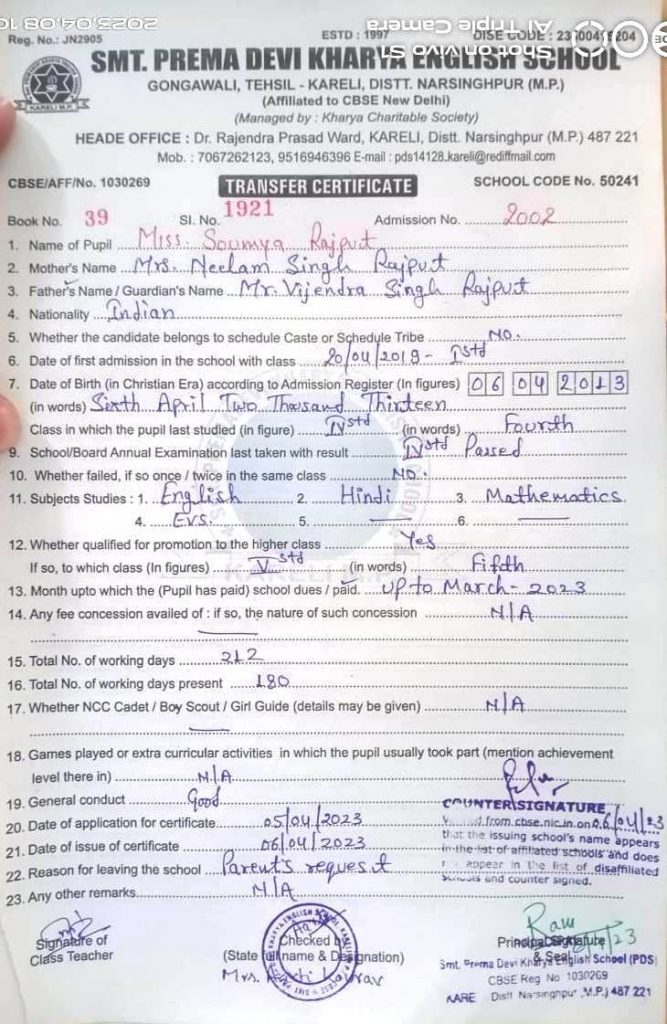 2023.04.08 10
Shot on vivo S1
AI Triple Camera
Reg. No.: JN2905
ESTD : 1997
DISE CODE :
SMT. PREMA DEVI KHARYA ENGLISH SCHOOL
GONGAWALI, TEHSIL - KARELI, DISTT. NARSINGHPUR (M.P.)
(Affiliated to CBSE New Delhi)
(Managed by : Kharya Charitable Society)
HEADE OFFICE : Dr. Rajendra Prasad Ward, KARELI, Distt. Narsinghpur (M.P.) 487 221
Mob. : 7067262123, 9516946396 E-mail : pds14128.kareli@rediffmail.com
KARELI M.P.
CBSE/AFF/No. 1030269 TRANSFER CERTIFICATE SCHOOL CODE No. 50241
Book No. 39 Sl. No. 1921 Admission No. 2002
1. Name of Pupil Miss. Soumya Rajput
2. Mother's Name Mrs. Neelam Singh Rajput
3. Father's Name / Guardian's Name Mr. Vijendra Singh Rajput
4. Nationality Indian
5. Whether the candidate belongs to schedule Caste or Schedule Tribe No.
6. Date of first admission in the school with class 20/04/2019 - Istd
7. Date of Birth (in Christian Era) according to Admission Register (In figures) 06 04 2013
(in words) Sixth April Two Thousand Thirteen
Class in which the pupil last studied (in figure) IVstd (in words) Fourth
9. School/Board Annual Examination last taken with result IVstd Passed
10. Whether failed, if so once / twice in the same class NO.
11. Subjects Studies : 1. English 2. Hindi 3. Mathematics
4. EVS. 5. 6.
12. Whether qualified for promotion to the higher class Yes
If so, to which class (In figures) Vstd (in words) Fifth
13. Month upto which the (Pupil has paid) school dues / paid. upto March - 2023
14. Any fee concession availed of : if so, the nature of such concession N/A
15. Total No. of working days 212
16. Total No. of working days present 180
17. Whether NCC Cadet / Boy Scout / Girl Guide (details may be given) N/A
18. Games played or extra curricular activities in which the pupil usually took part (mention achievement
level there in) N/A
19. General conduct Good
20. Date of application for certificate 05/04/2023
21. Date of issue of certificate 06/04/2023
22. Reason for leaving the school Parent's request
23. Any other remarks N/A
COUNTER SIGNATURE
from cbse.nic.in on 06/04/23
that the issuing school's name appears
in the list of affiliated schools and does
appear in the list of disaffiliated
and counter signed.
Signature of
Class Teacher
Checked by
(State full name & Designation)
Mrs.
Principal Signature
& Seal
Smt. Prema Devi Kharya English School (PDS)
CBSE Reg No 1030269
KARE Distt Narsinghpur (M.P.) 487 221